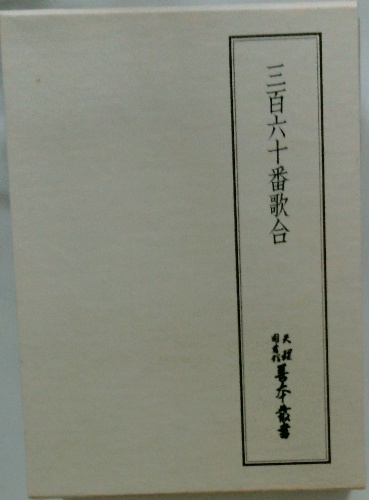 三百六十番歌合
天理
図書館
善本叢書